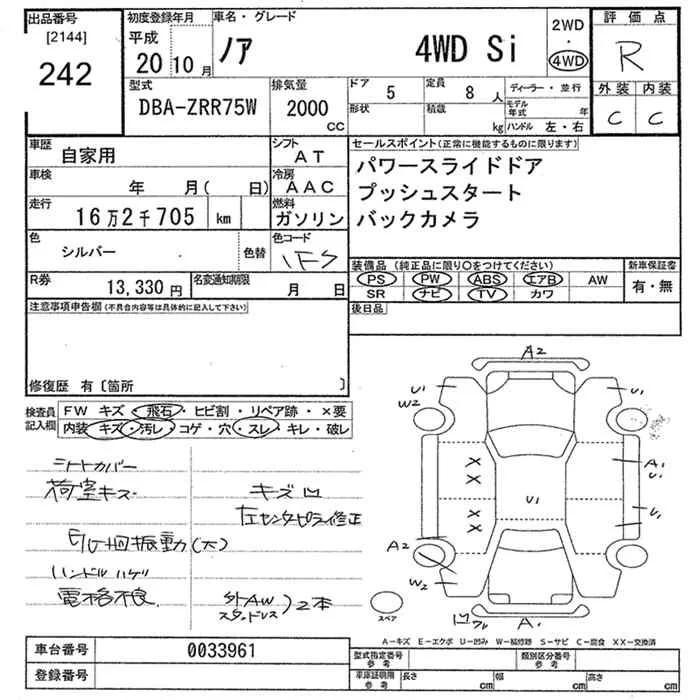 出品番号
[2144]
242
初度登録年月
平成
20 10 月
車名・グレード
ノア 4WD Si
2WD
・
4WD
評価点
R
外装 内装
C C
型式
DBA-ZRR75W
排気量
2000
CC
ドア
5
定員
8 人
形状
積載
kg
ディーラー・並行
モデル年式 年
ハンドル 左・右
車歴
自家用
シフト
AT
車検
年 月( 日)
冷房
AAC
走行
16万2千705 km
燃料
ガソリン
色
シルバー
色替
色コード
1F5
R券
13,330 円
名変通知期限
月 日
セールスポイント(正常に機能するものに限ります)
パワースライドドア
プッシュスタート
バックカメラ
装備品 (純正品に限り○をつけてください)
新車保証書
PS PW ABS エアB AW
SR ナビ TV カワ
有・無
後日品
注意事項申告欄(不具合内容等は具体的に記入して下さい)
修復歴 有〔箇所 〕
検査員記入欄
FW キズ・飛石・ヒビ割・リペア跡・×要
内装 キズ・汚レ・コゲ・穴・スレ・キレ・破レ
シートカバー
荷室キズ
キズ凹
左センタピラー修正
E/G回振動(大)
ハンドルハゲ
電格不良
外AW
スタッドレス
)2本
A2
U1
W2
U1
A1
U1
U1
× ×
× ×
U1
A2
W2
凹ワレ
A1
スペア
A-キズ E-エクボ U-凹み W-補修跡 S-サビ C-腐食 XX-交換済
車台番号
0033961
登録番号
型式指定番号
参考
類別区分番号
参考
車庫証明用
参考
長さ cm
幅 cm
高さ cm